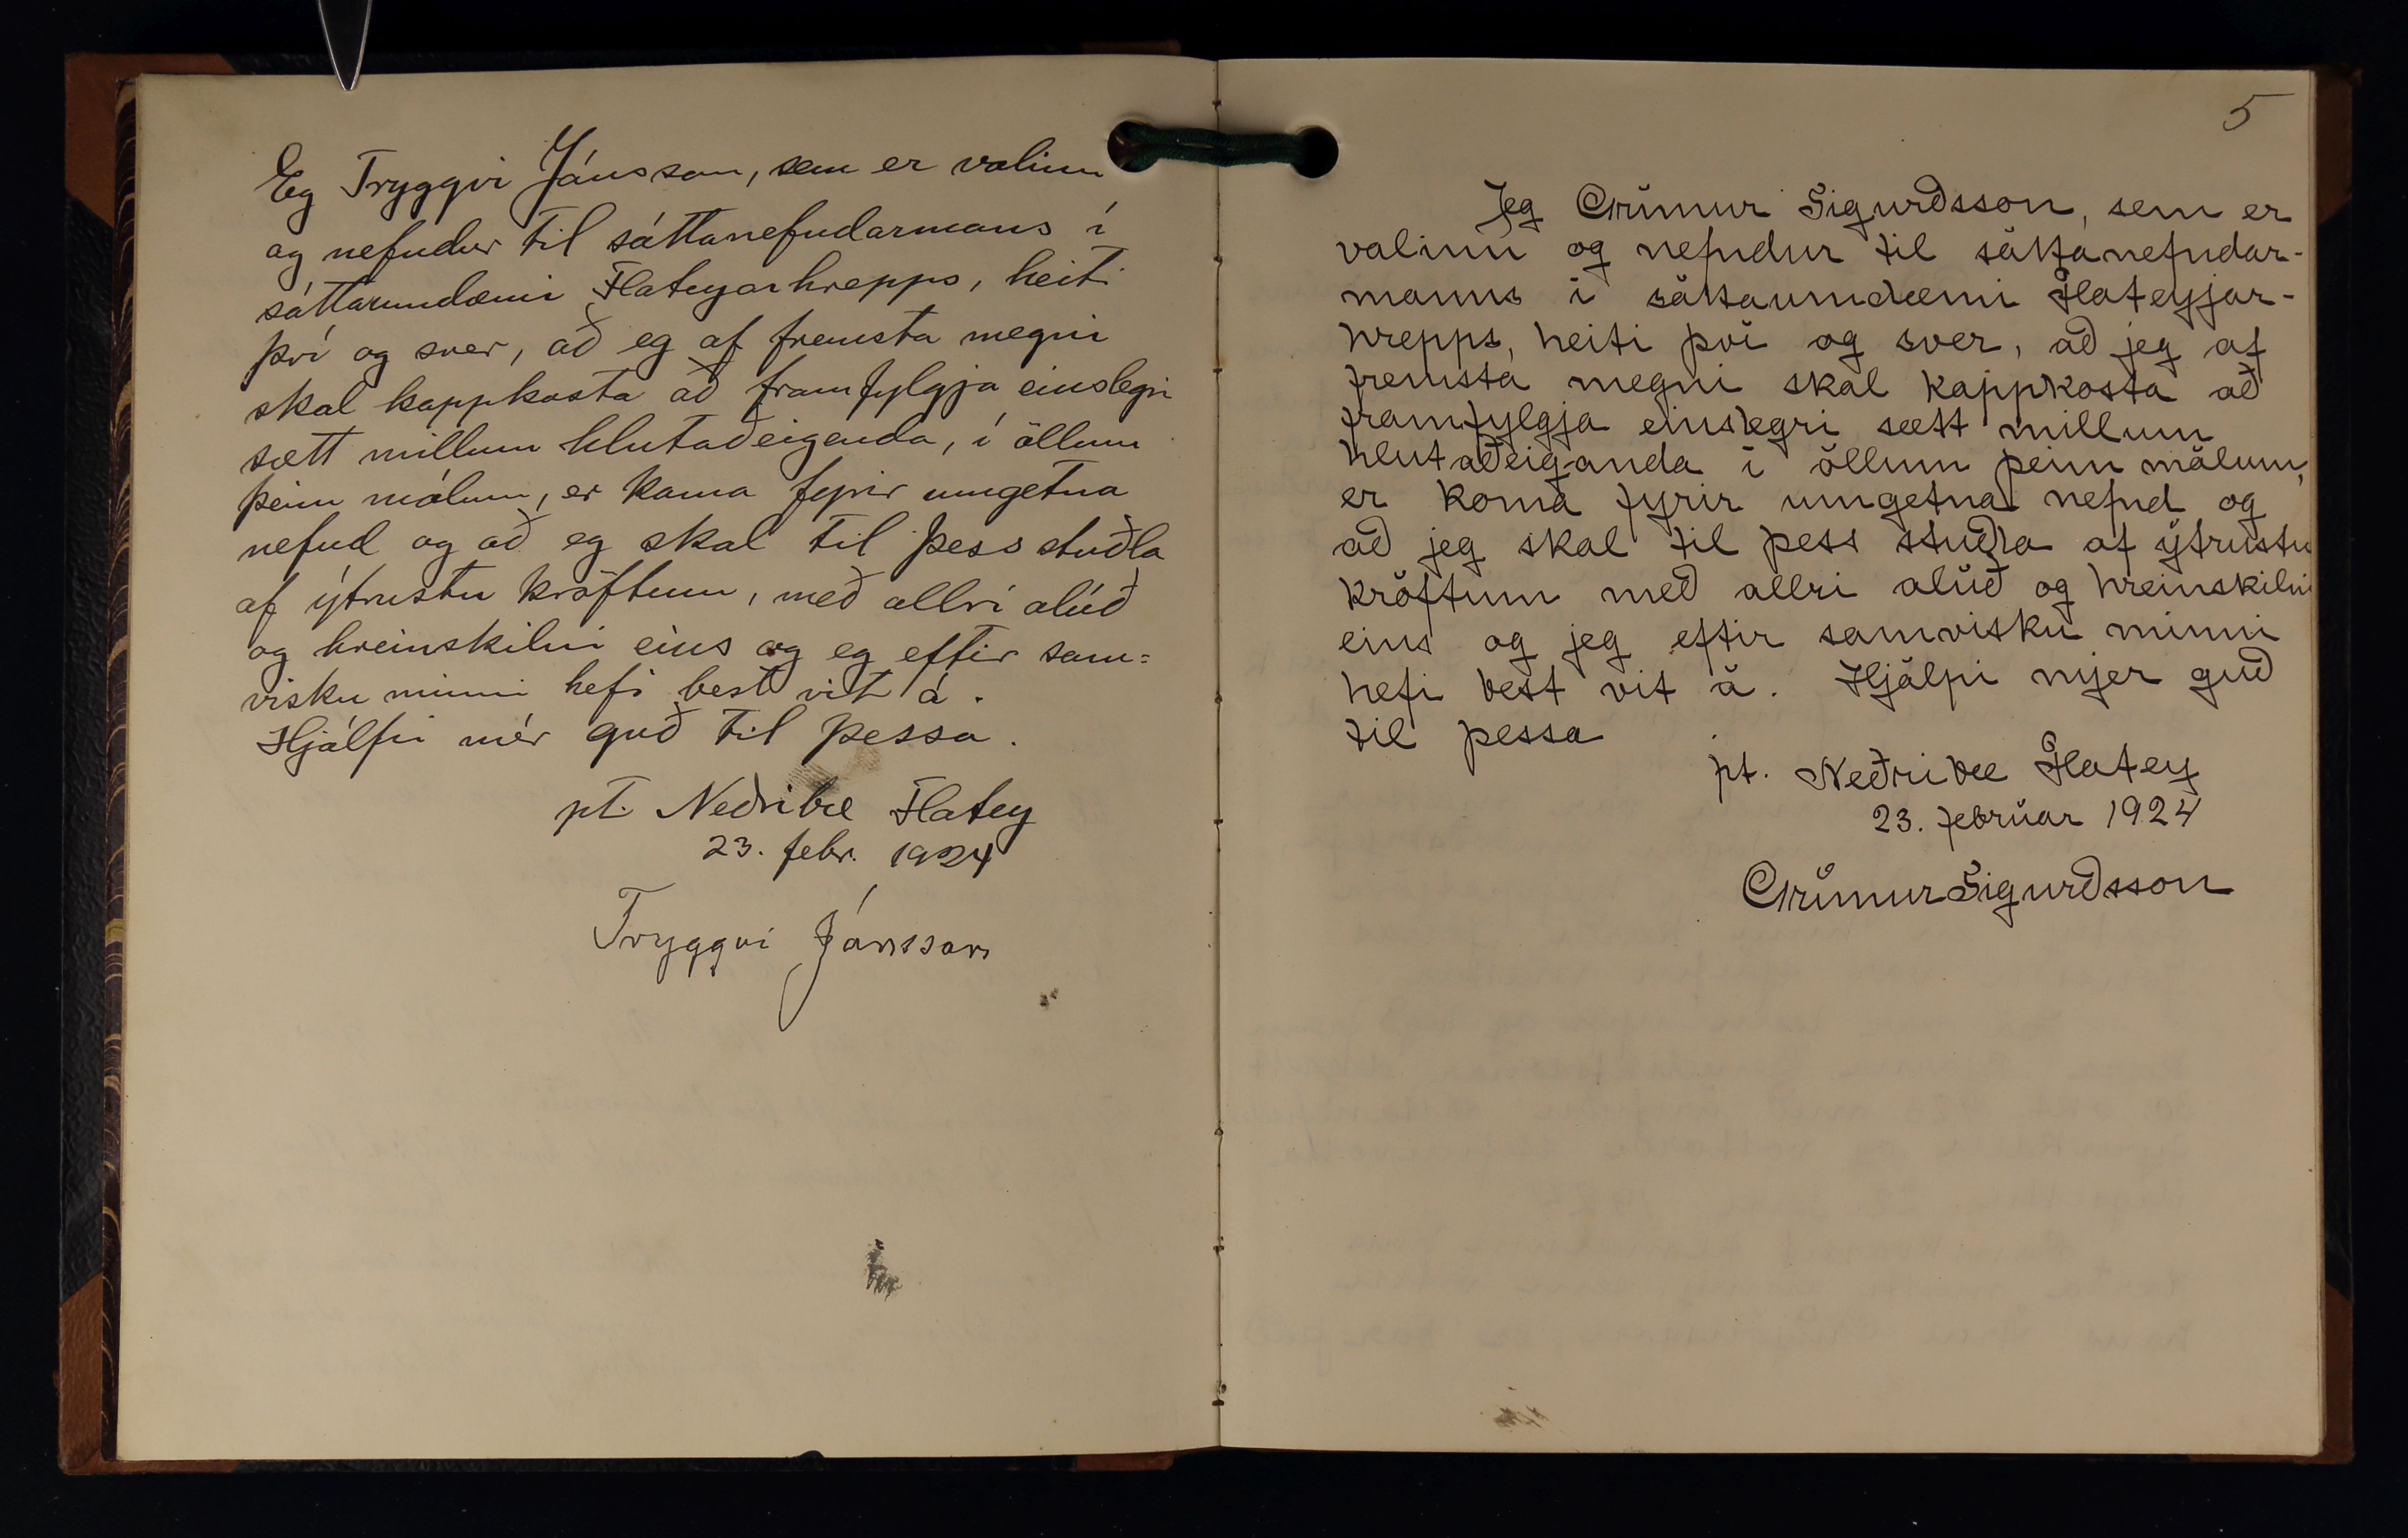 Eg Tryggvi Jónsson, sem er valinn
og nefndur til sáttanefndarmans í
sáttaumdæmi Flateyarhrepps, heiti
því og sver, að eg af fremsta megni
skal kappkosta að framfylgja einslegri
sætt millum hlutaðeigenda, í öllum
þeim málum, er koma fyrir umgetna
nefnd og að eg skal til þess stuðla
af ýtrustu kröftum, með allri alúð
og hreinskilni eins og eg eftir sam=
visku minni hefi best vit á.
Hjálpi mér guð til þessa.
pt. Neðribæ Flatey
23. febr. 1924
Tryggvi Jónsson
5
Jeg Grímur Sigurðsson, sem er
valinn og nefndur til sáttanefndar-
manns í sáttaumdæmi Flateyjar-
hrepps, heiti því og sver, að jeg af
fremsta megni skal kappkosta að
framfylgja einslegri sætt millum
hlutaðeiganda í öllum þeim málum,
er koma fyrir umgetna nefnd og
að jeg skal til þess stuðla af ýtrustu
kröftum með allri alúð og hreinskilni
eins og jeg eftir samvisku minni
hefi best vit á. Hjálpi mjer guð
til þessa
pt. Neðribæ Flatey
23. febrúar 1924
Grímur Sigurðsson